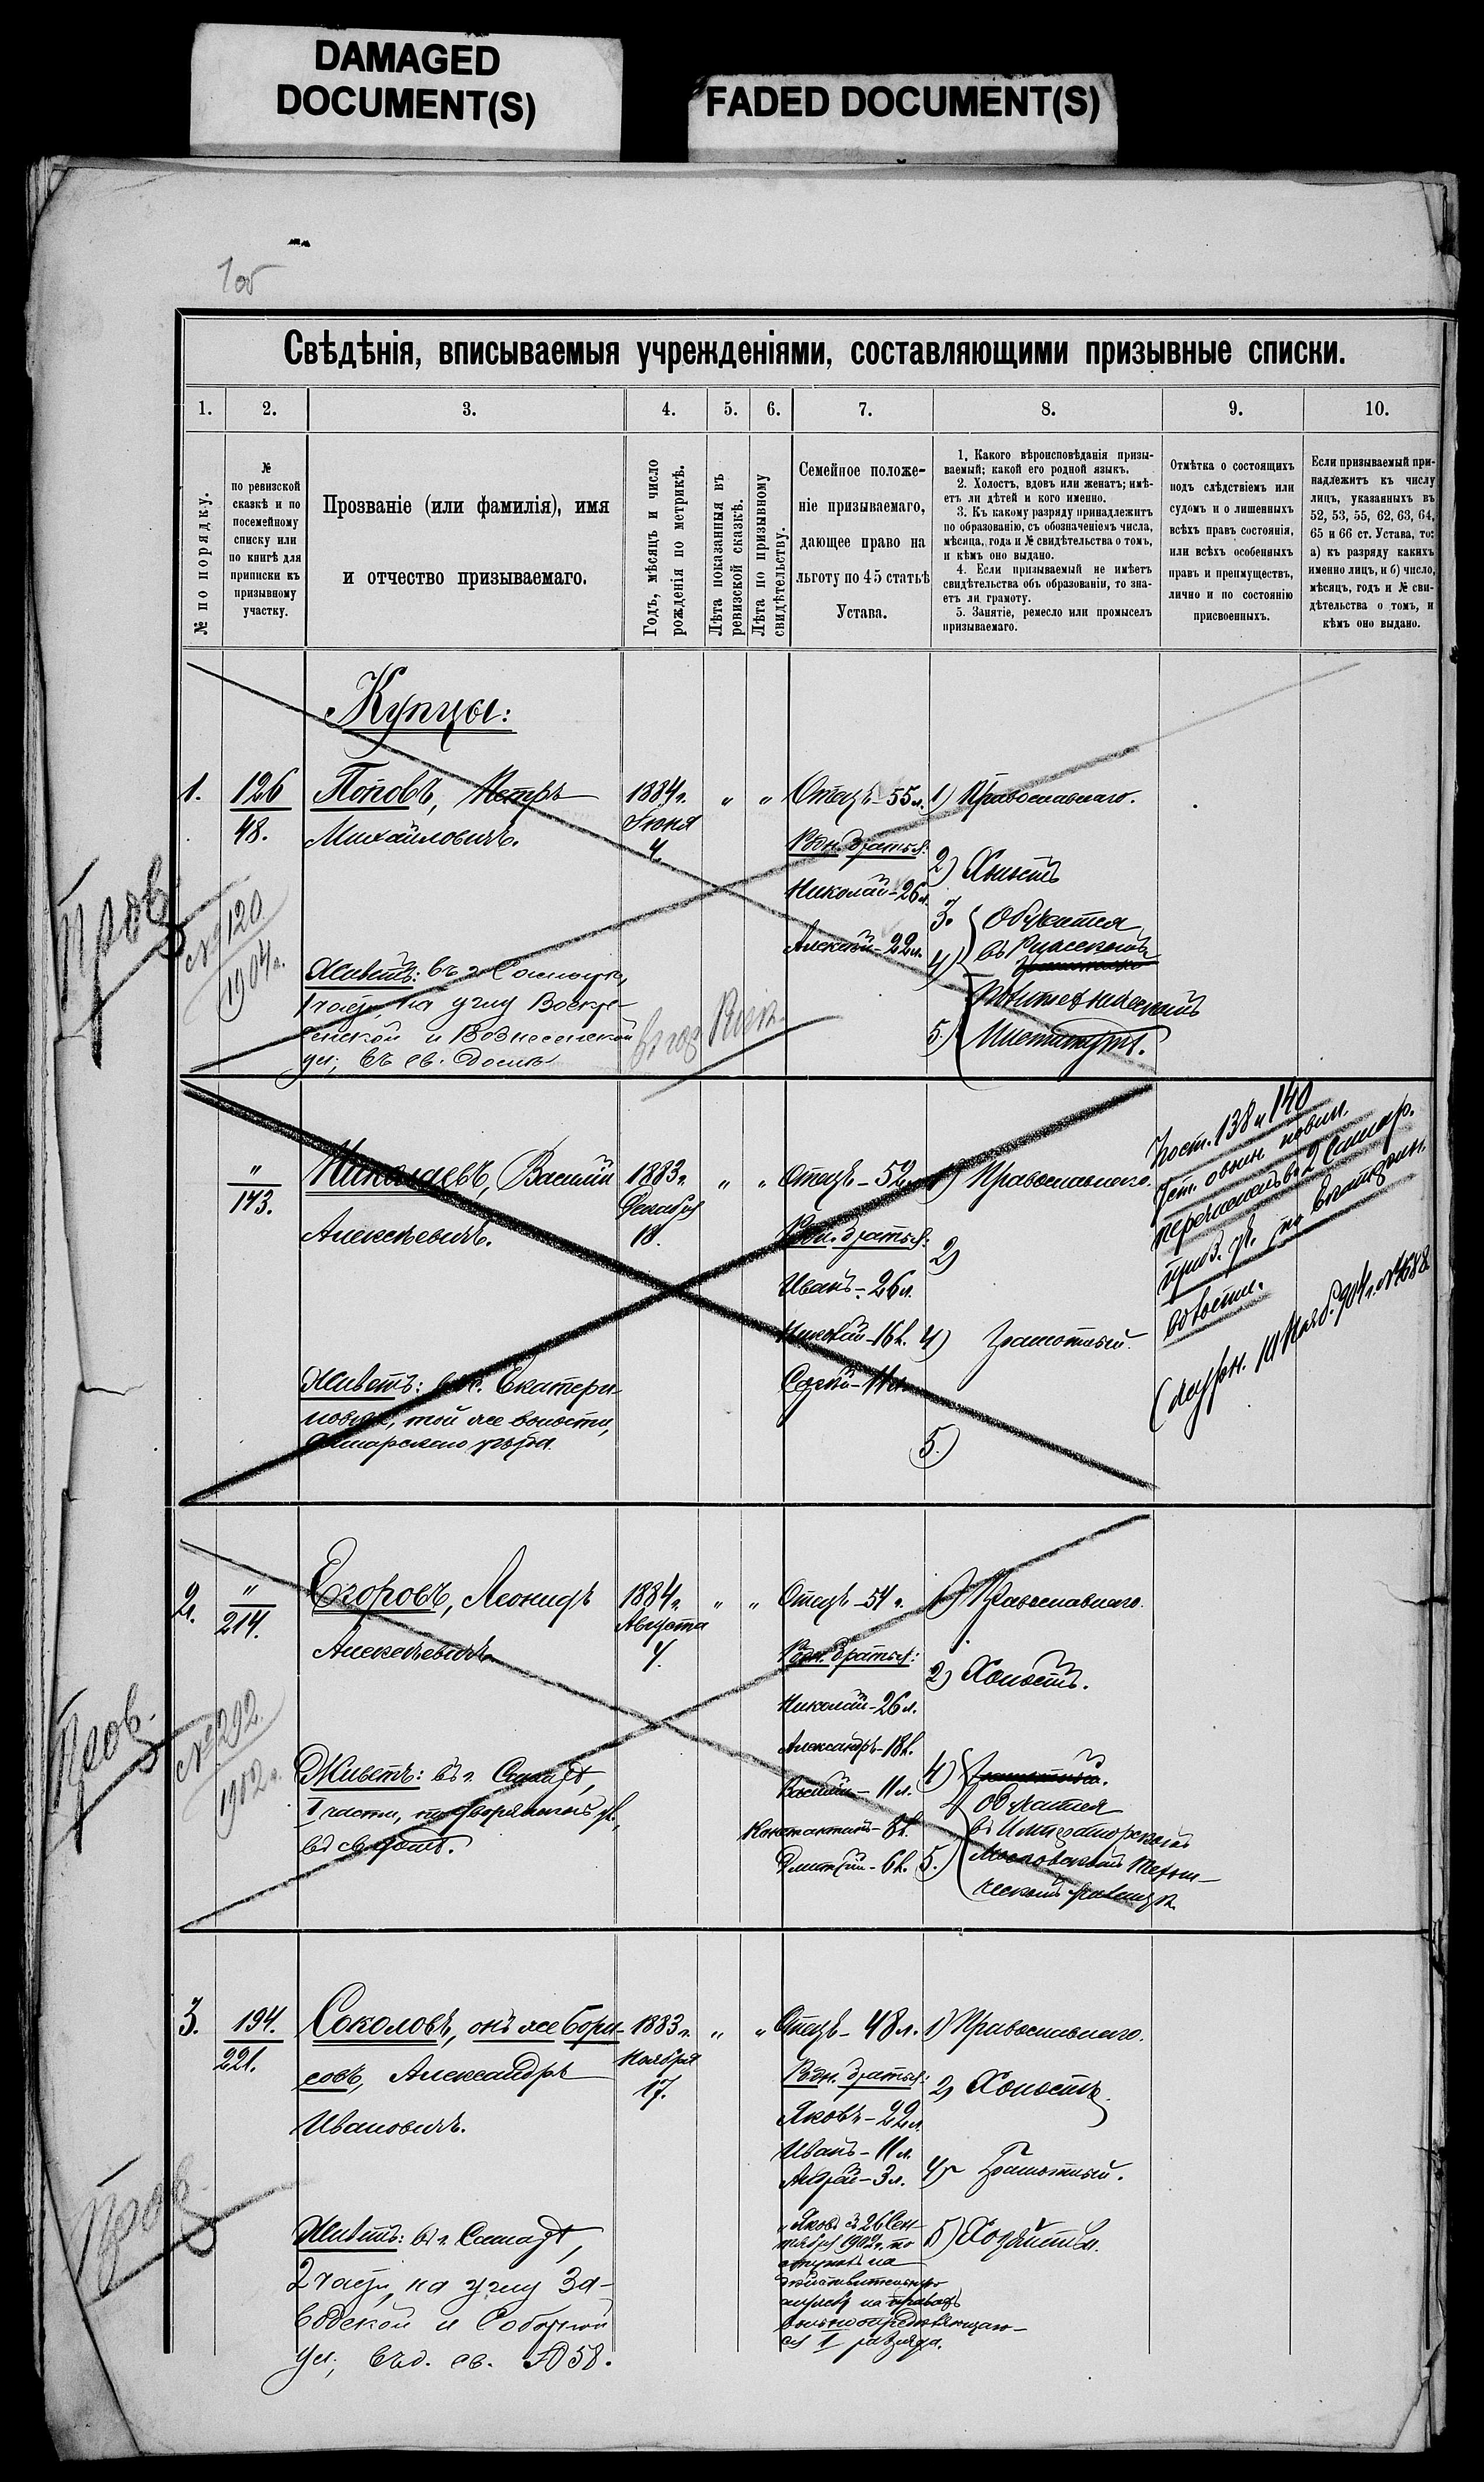 DAMAGED
DOCUMENT(S)
FADED DOCUMENT(S)
Свѣдѣнія, вписываемыя учрежденіями, составляющими призывные списки.
1. 2. 3. 4. 5. 6. 7. 8. 9. 10.
№ по порядку.
№
по ревизской
сказкѣ и по
посемейному
списку или
по книгѣ для
приписки къ
призывному
участку.
Прозваніе (или фамилія), имя
и отчество призываемаго.
Годъ, мѣсяцъ и число
рожденія по метрикѣ.
Лѣта показанныя въ
ревизской сказкѣ.
Лѣта по призывному
свидѣтельству.
Семейное положе-
ніе призываемаго,
дающее право на
льготу по 45 статьѣ
Устава.
1. Какого вѣроисповѣданія призы-
ваемый; какой его родной языкъ.
2. Холостъ, вдовъ или женатъ; имѣ-
етъ ли дѣтей и кого именно.
3. Къ какому разряду принадлежитъ
по образованію, съ обозначеніемъ числа,
мѣсяца, года и № свидѣтельства о томъ,
и кѣмъ оно выдано.
4. Если призываемый не имѣетъ
свидѣтельства объ образованіи, то зна-
етъ ли грамоту.
5. Занятіе, ремесло или промыселъ
призываемаго.
Отмѣтка о состоящихъ
подъ слѣдствіемъ или
судомъ и о лишенныхъ
всѣхъ правъ состоянія,
или всѣхъ особенныхъ
правъ и преимуществъ,
лично и по состоянію
присвоенныхъ.
Если призываемый при-
надлежитъ къ числу
лицъ, указанныхъ въ
52, 53, 55, 62, 63, 64,
65 и 66 ст. Устава, то:
а) къ разряду какихъ
именно лицъ, и б) число,
мѣсяцъ, годъ и № сви-
дѣтельства о томъ, и
кѣмъ оно выдано.
Купцы:
1.
126
48.
Поповъ, Петръ
Михайловичъ.
1884 г.
Іюня
4.
" "
Отецъ - 55 л.
Родн. братья:
Николай - 26 л.
Алексѣй - 22 л.
1) Православнаго.
2) Холостъ
3.
4)
5.)
Обучается
въ Рижскомъ
Политехническомъ
Институтѣ.
Пров.
№ 120
1904 г.
Живетъ: въ г. Самарѣ,
1 части, на углу Воскре-
сенской и Вознесенской
ул., въ св. домѣ
"
143.
Николаевъ, Василій
Алексѣевичъ.
1883 г.
Декабря
18.
" "
Отецъ - 52 л.
Родн. братья:
Иванъ - 26 л.
Николай - 16 л.
Сергѣй - 11 л.
1) Православнаго.
2)
4) Грамотный.
5.)
Живетъ: въ с. Екатери-
новкѣ, той же волости,
Самарскаго уѣзда.
Пост. 138 и 140
Уст. о воин. повин.
перечисленъ въ 2 Самар.
приз. уч. по Екатерин.
волости.
2.
"
214.
Егоровъ, Леонидъ
Алексѣевичъ
1884 г.
Августа
4.
" "
Отецъ - 54 л.
Родн. братья:
Николай - 26 л.
Александръ - 18 л.
Василій - 11 л.
Константинъ - 8 л.
Дмитрій - 6 л.
1) Православнаго.
2) Холостъ.
4) Грамотный.
5.)
Обучается
въ Императорскомъ
Московскомъ Техни-
ческомъ училищѣ.
Пров.
№ 292
1902 г.
Живетъ: въ г. Самарѣ,
1 части, по Дворянской ул.,
въ св. домѣ.
3.
194.
221.
Соколовъ, онъ же Бори-
совъ, Александръ
Ивановичъ.
1883 г.
Ноября
17.
" "
Отецъ - 48 л.
Родн. братья:
Яковъ - 22 л.
Иванъ - 11 л.
Андрей - 3 л.
Яковъ съ 26 Сен-
тября 1902 г. по-
ступилъ на
дѣйствительную
службу на правахъ
вольноопредѣляющаго-
ся 1 разряда.
1) Православнаго.
2) Холостъ.
4) Грамотный.
5)
Пров.
Живетъ: въ г. Самарѣ,
2 части, на углу За-
водской и Соборной
ул., въ д. св. № 58.